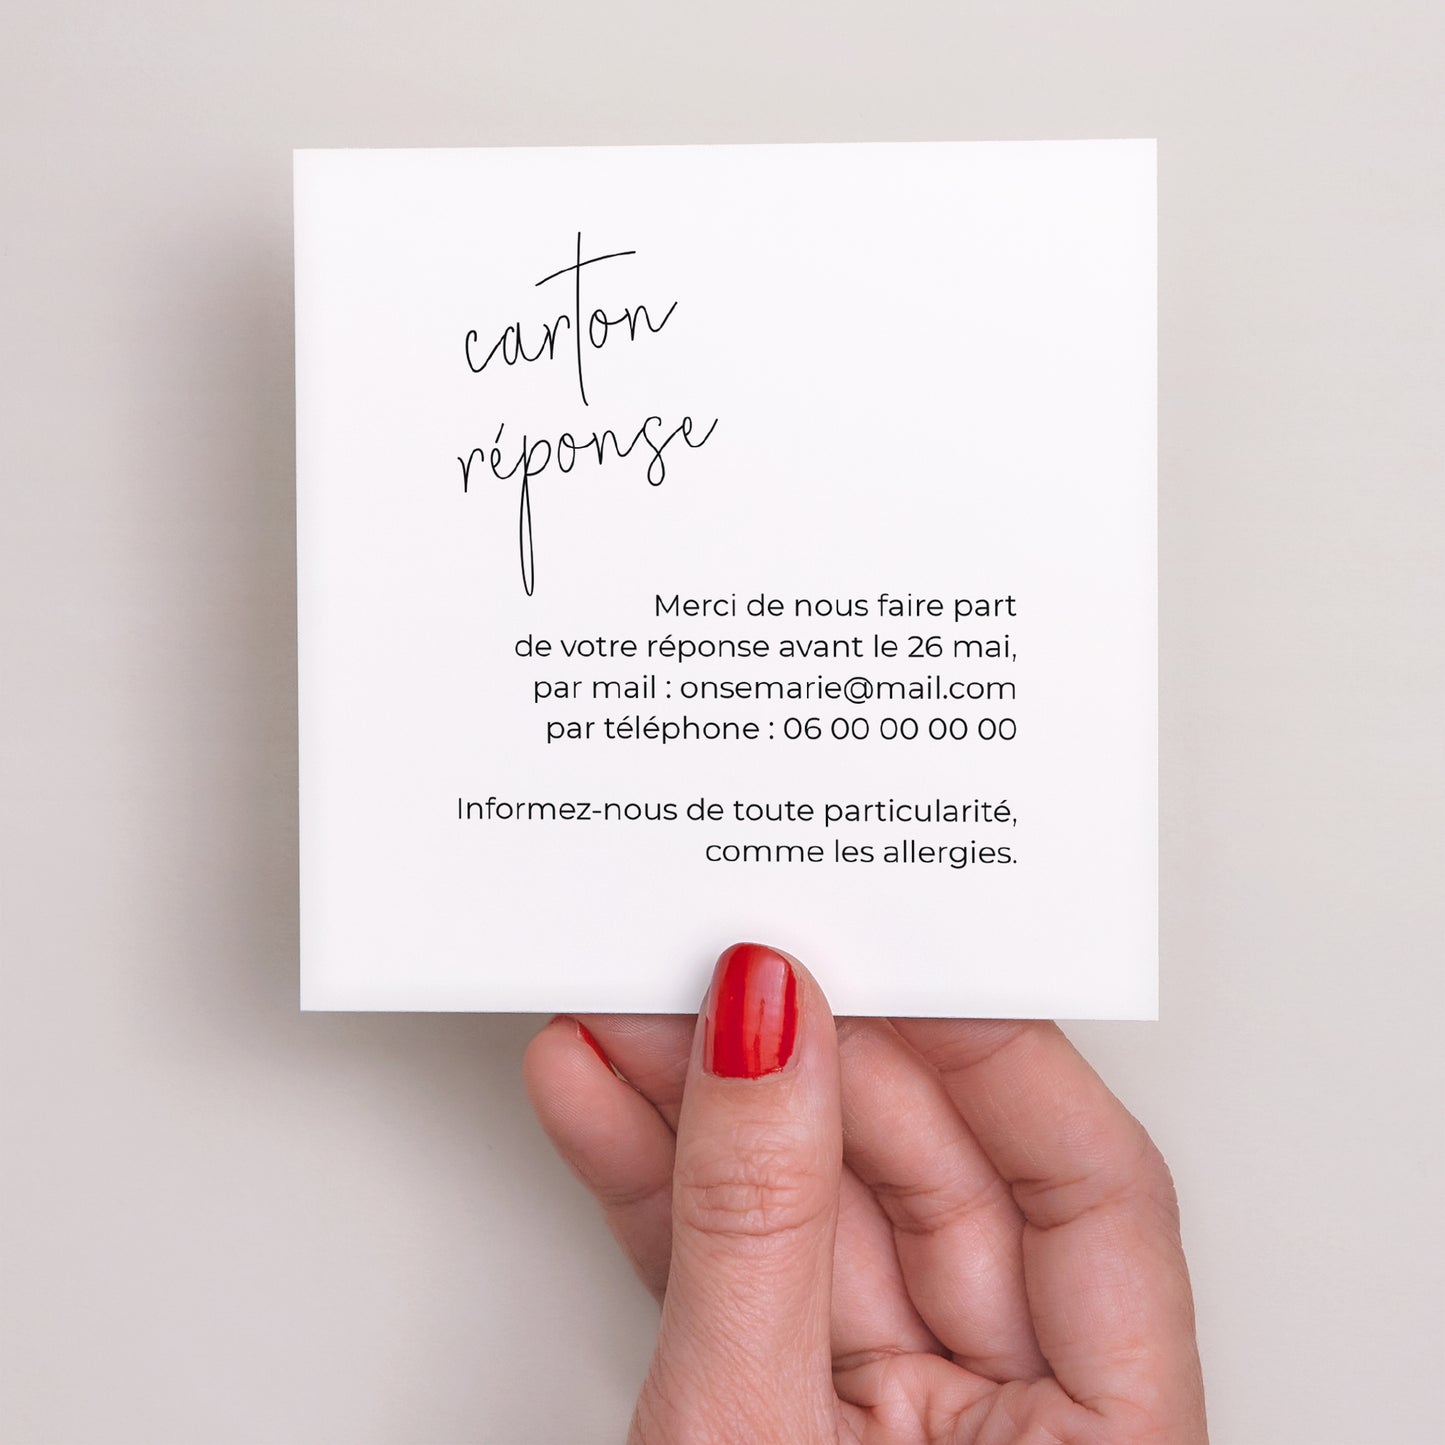 carton
réponse
Merci de nous faire part
de votre réponse avant le 26 mai,
par mail : onsemarie@mail.com
par téléphone : 06 00 00 00 00
Informez-nous de toute particularité,
comme les allergies.